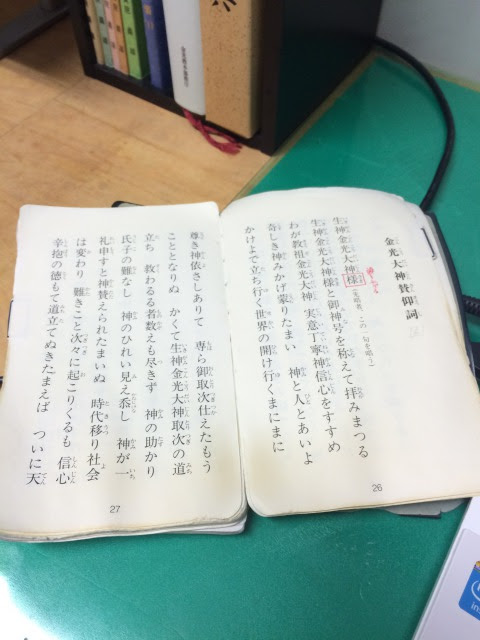 金光大神賛仰詞
生神金光大神様（先唱者、この一句を唱う）
生神金光大神様と御神号を称えて拝みまつる
わが教祖金光大神　実意丁寧神信心をすすめ
奇しき神みかげ蒙りたまい　神と人とあいよ
かけよで立ち行く世界の開け行くまにまに
26
尊き神依さしありて　専ら御取次仕えたもう
こととなりぬ　かくて生神金光大神取次の道
立ち　教わるる者数えも尽きず　神の助かり
氏子の難なし　神のひれい見え忝し　神が一
礼申すと神賛えられたまいぬ　時代移り社会
は変わり　難きこと次々に起こりくるも　信心
辛抱の徳もて道立てぬきたまえば　ついに天
27